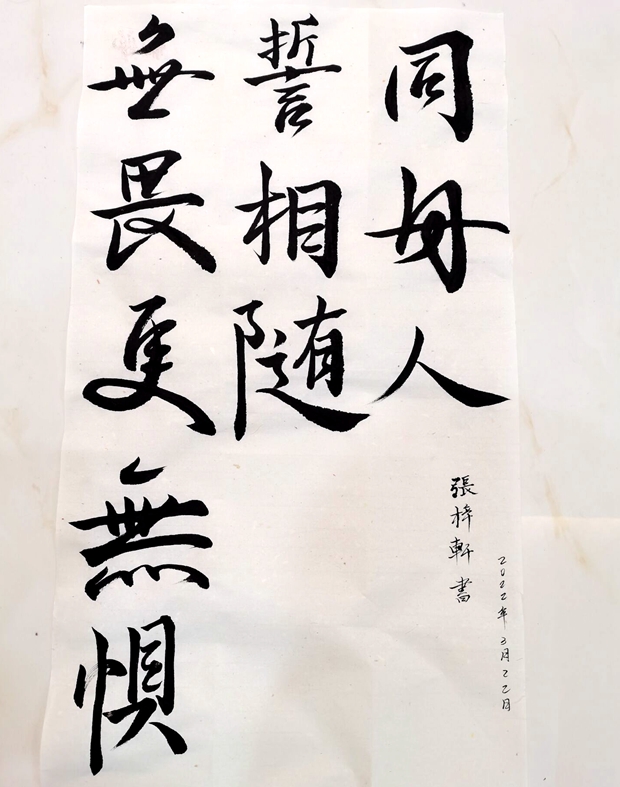 同舟人
誓相随
無畏更無惧
張梓軒書
2022年3月22日